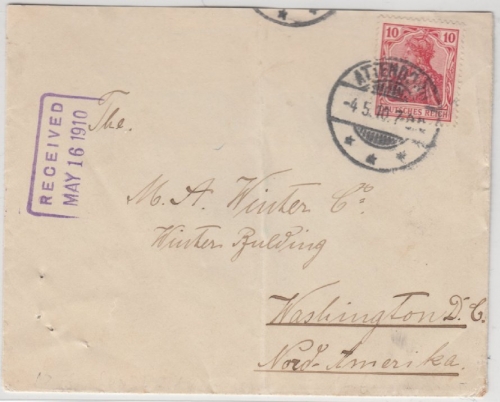 10 10
DEUTSCHES REICH
ATTENDORN
-4.5.10.7-8
RECEIVED
MAY 16 1910
The.
M. A. Winter Co.
Winter Bulding
Washington D. C.
Nord-Amerika.